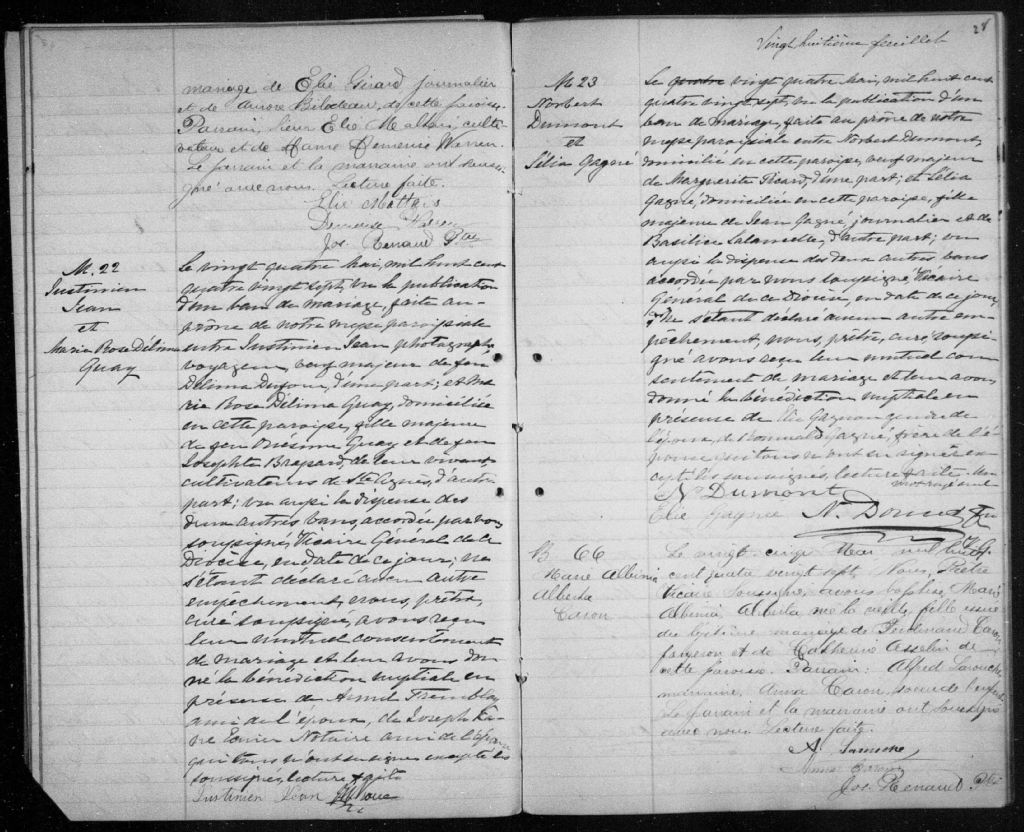 mariage de Elie Girard journalier
et de Aurore Bilodeau, de cette paroisse.
Parrain, sieur Elie Maltais, culti-
vateur et de Dame Demerise Warren.
Le parrain et la marraine ont
signé avec nous. Lecture faite.
Elie Maltais
Demerise Warren
Jos. Renaud Ptre
M. 22
Justinien
Jean
et
Marie Rose Délima
Guay
Le vingt quatre Mai, mil huit cent
quatre vingt sept, vu la publication
d'un ban de mariage, faite au
prône de notre messe paroissiale
entre Justinien Jean photographe
voyageur, veuf majeur de feu
Délima Dufour, d'une part; et Ma-
rie Rose Délima Guay, domiciliée
en cette paroisse, fille majeure
de feu Onésime Guay et de feu
Josephte Brassard, de leur vivant,
cultivateurs de Ste Agnès, d'autre
part; vu aussi la dispense des
deux autres bans, accordée par nous
soussigné, Vicaire Général de ce
Diocèse, en date de ce jour; ne
s'étant déclaré aucun autre
empêchement, nous, prêtre,
curé soussigné, avons reçu
leur mutuel consentement
de mariage et leur avons don-
né la bénédiction nuptiale en
présence de Tremblay
ami de l'époux, de Joseph
Notaire ami de l'époux
qui tous n'ont su signer excepté les
soussignés, lecture faite
Justinien Jean
Vingt huitième feuillet
28
M. 23
Norbert
Dumont
et
Célia Gagné
Le vingt quatre Mai, mil huit cent
quatre vingt sept, vu la publication d'un
ban de mariage, faite au prône de notre
messe paroissiale entre Norbert Dumont,
domicilié en cette paroisse, veuf majeur
de Marguerite Picard, d'une part; et Célia
Gagné, domiciliée en cette paroisse, fille
majeure de Jean Gagné, journalier et de
Basilice Lalancette, d'autre part; vu
aussi la dispense des deux autres bans
accordée par nous soussigné, Vicaire
Général de ce Diocèse, en date de ce jour,
Ne s'étant déclaré aucun autre em-
pêchement, nous, prêtre, curé, soussi-
gné avons reçu leur mutuel con-
sentement de mariage et leur avons
donné la bénédiction nuptiale en
présence de Elie Gagnon gendre de
l'époux, de Gagné, frère de l'é-
pouse qui tous n'ont su signer ex-
cepté les soussignés, lecture faite. Un
mot rayé nul
N. Dumont
Elie Gagnon N. Doucet Ptre
B 66
Marie Albinia
Alberta
Caron
Le vingt cinq Mai mil huit
cent quatre vingt sept, Nous, Prêtre
Vicaire soussigné, avons baptisé Marie
Albinia Alberta née la veille, fille issue
du légitime mariage de Ferdinand Caron
forgeron et de Catherine Asselin de
cette paroisse. Parrain: Alfred Larouche,
marraine, Anna Caron, soeur de l'enfant.
Le parrain et la marraine ont soussigné
avec nous. Lecture faite.
A. Larouche
Anna Caron
Jos. Renaud Ptre